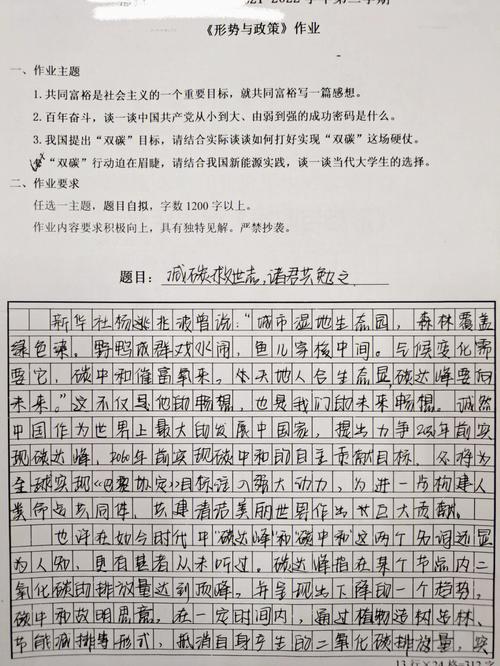 2021-2022 学年第二学期
《形势与政策》作业
一、作业主题
1.共同富裕是社会主义的一个重要目标，就共同富裕写一篇感想。
2.百年奋斗，谈一谈中国共产党从小到大、由弱到强的成功密码是什么。
3.我国提出“双碳”目标，请结合实际谈谈如何打好实现“双碳”这场硬仗。
“双碳”行动迫在眉睫，请结合我国新能源实践，谈一谈当代大学生的选择。
二、作业要求
任选一主题，题目自拟，字数 1200 字以上。
作业内容要求积极向上，具有独特见解。严禁抄袭。
题目： 减碳救世志,诸君共勉之
新华社杨逃兆波曾说：“城市湿地生态园，森林覆盖
绿色臻。野鸭成群戏水闹，鱼儿穿梭中间。气候变化需
要它，碳中和催富氧来。冬天地人合生态显,碳达峰要向
未来。”这不仅是他的畅想，也是我们的未来畅想。诚然
中国作为世界上最大的发展中国家，提出力争2030年前实
现碳达峰，2060年前实现碳中和的自主贡献目标，必将为
全球实现《巴黎协定》目标注入强大动力，为进一步构建人
类命运共同体，共建清洁美丽世界作出巨大贡献。
也许在如今时代中“碳达峰”和“碳中和”这两个名词还显
为人知，更有甚者从未听过。碳达峰指在某个节点内二
氧化碳的排放量达到顶峰，并呈现出下降的一个趋势。
碳中和故明思意，在一定时间内，通过植物造树造林、
节能减排等形式，抵消自身产生的二氧化碳排放量，实
13 行×24 格=312 字